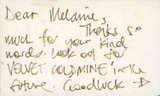 Dear Melanie,
Thanks so
much for your kind
words. Look out for
VELVET GOLDMINE in the
future. Goodluck